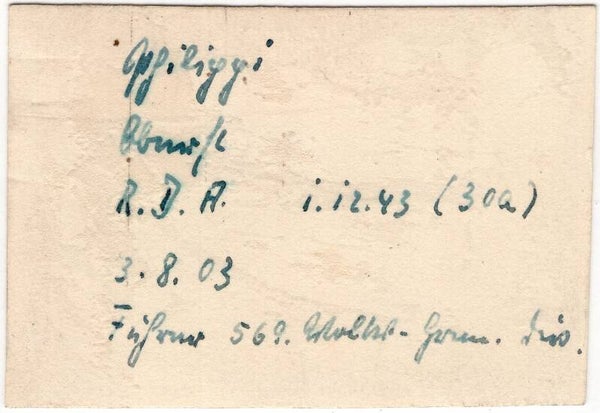 Philippi
Oberst
R.D.A. 1.12.43 (30a)
3.8.03
Führer 569. Volks-Gren. Div.